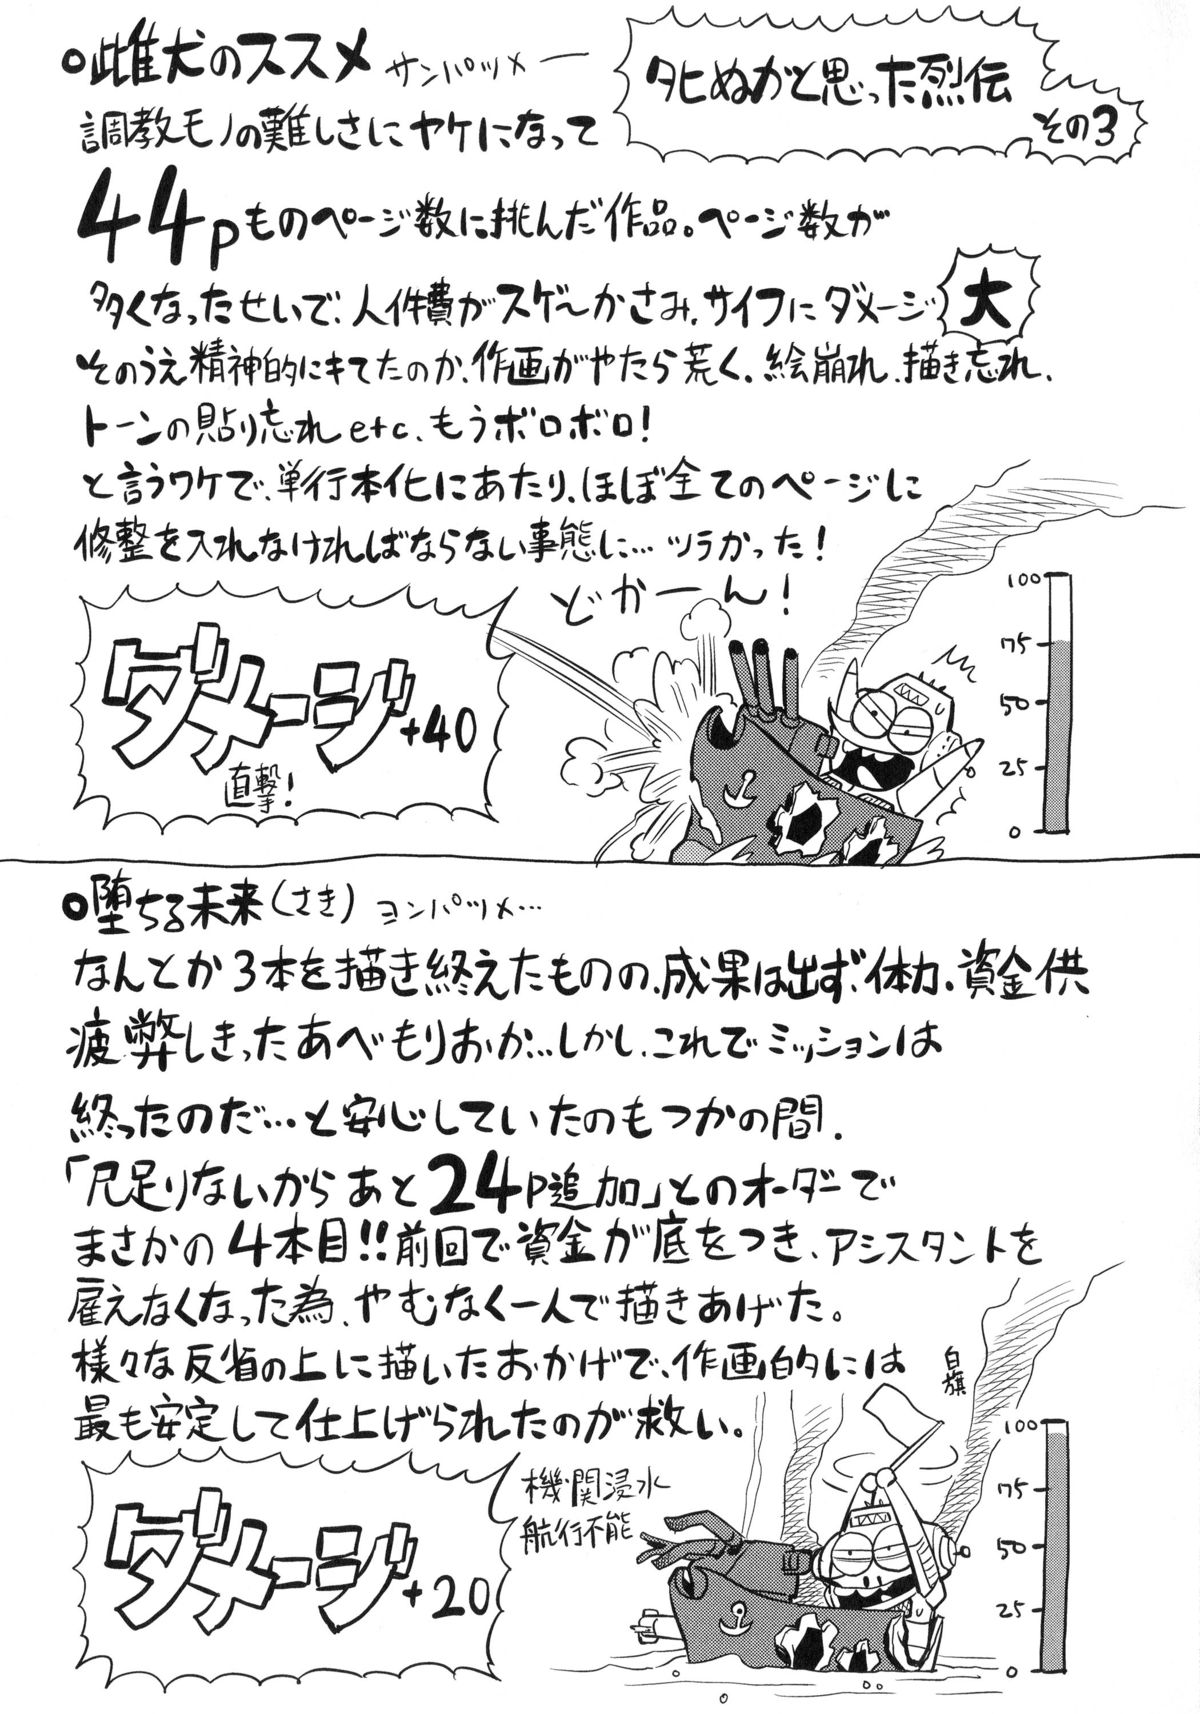 タヒぬかと思った烈伝
その3
雌犬のススメ サンパツメー
調教モノの難しさにヤケになって
44pものページ数に挑んだ作品。ページ数が
多くなったせいで、人件費がスゲ〜かさみ、サイフにダメージ大
そのうえ精神的にキてたのか、作画がやたら荒く、絵崩れ、描き忘れ、
トーンの貼り忘れetc、もうボロボロ!
と言うワケで、単行本化にあたり、ほぼ全てのページに
修整を入れなければならない事態に…ツラかった!
どかーん!
ダメージ+40
直撃!
100
75
50
25
0
堕ちる未来(さき) ヨンパツメ…
なんとか3本を描き終えたものの、成果は出ず、体力、資金供
疲弊しきったあべもりおか…しかし、これでミッションは
終ったのだ…と安心していたのもつかの間、
「尺足りないからあと24P追加」とのオーダーで
まさかの4本目!!前回で資金が底をつき、アシスタントを
雇えなくなった為、やむなく一人で描きあげた。
様々な反省の上に描いたおかげで、作画的には
最も安定して仕上げられたのが救い。
白旗
機関浸水
航行不能
ダメージ+20
100
75
50
25
0